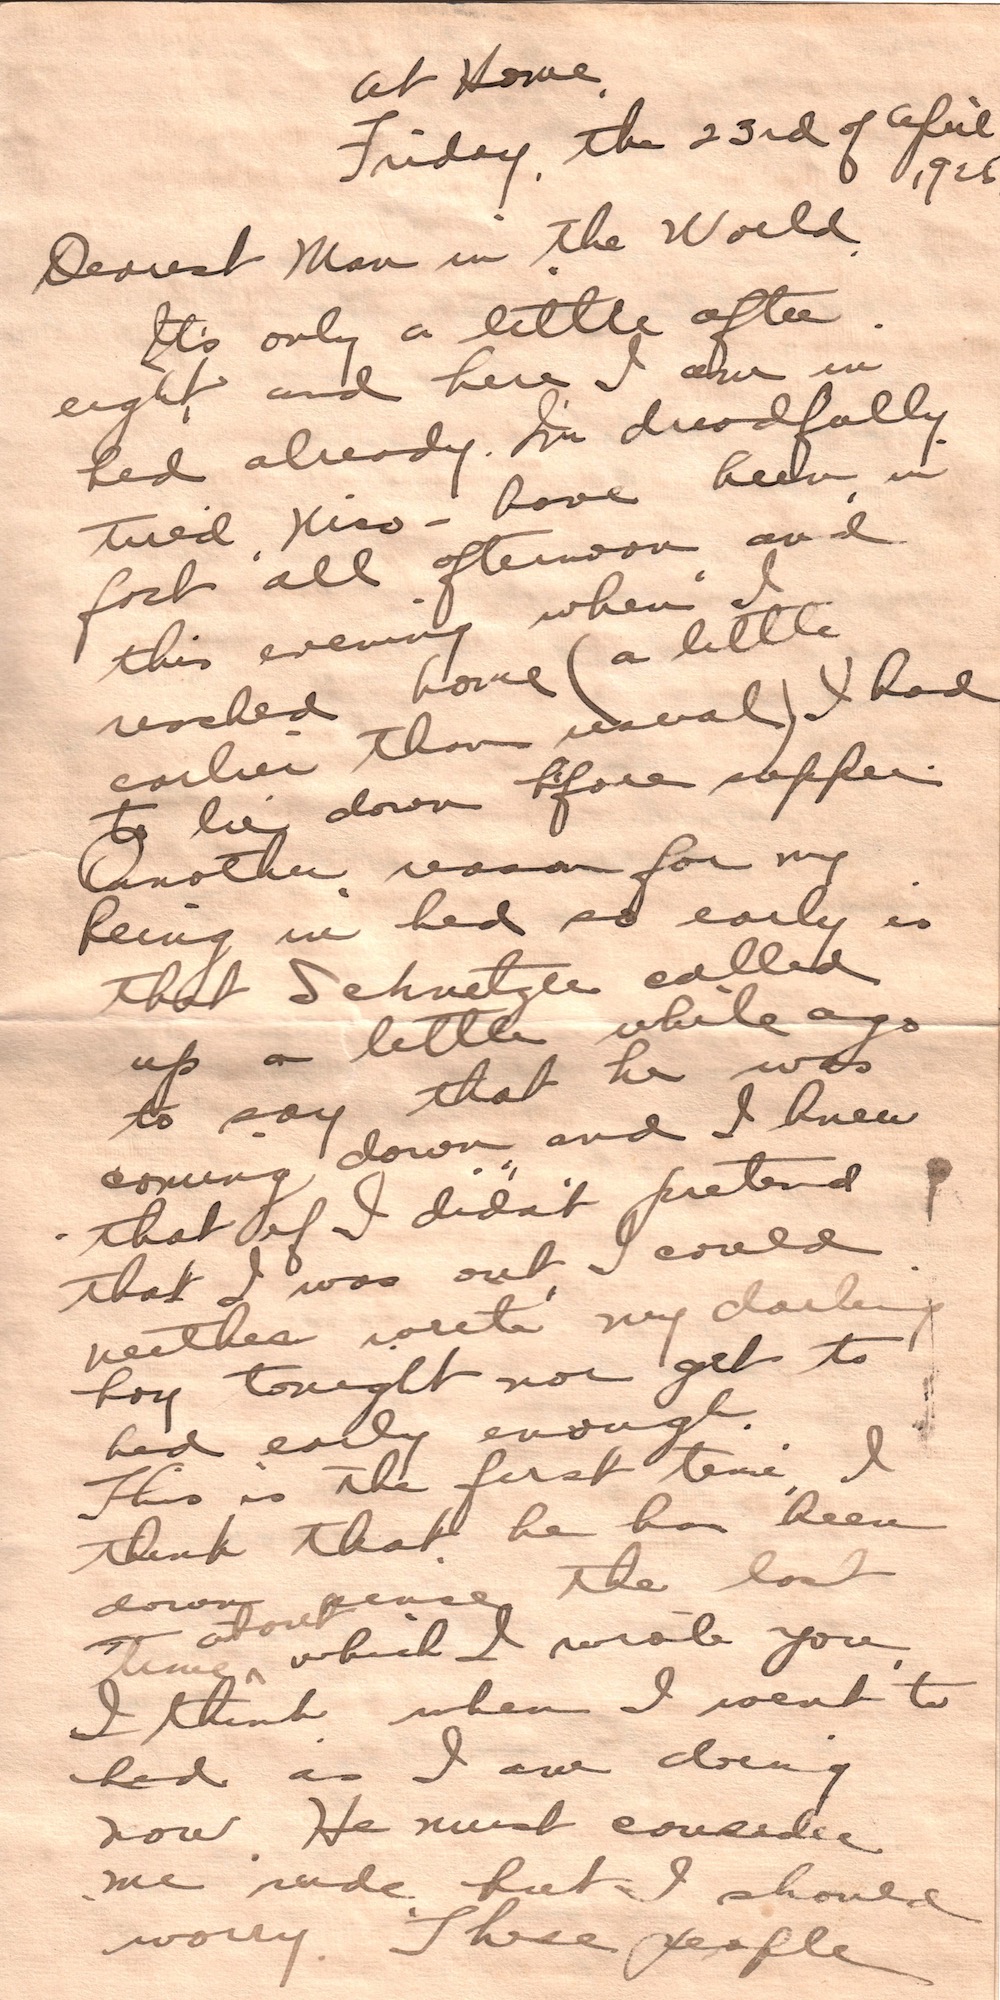 at Home.
Friday, the 23rd of April
1926
Dearest Man in the World.
It's only a little after
eight and here I am in
bed already. I'm dreadfully
tired, - have been in
fort all afternoon and
this evening when I
reached home (a little
earlier than usual) I had
to lie down before supper.
Another reason for my
being in bed so early is
that Schnetzle called
up a little while ago
to say that he was
coming down and I knew
that if I didn't pretend
that I was out, I could
neither write my darling
boy tonight nor get to
bed early enough.
This is the first time, I
think that he has been
down since the last
time about which I wrote you,
I think when I went to
bed as I am doing
now. He must consider
me rude but I should
worry. Those people